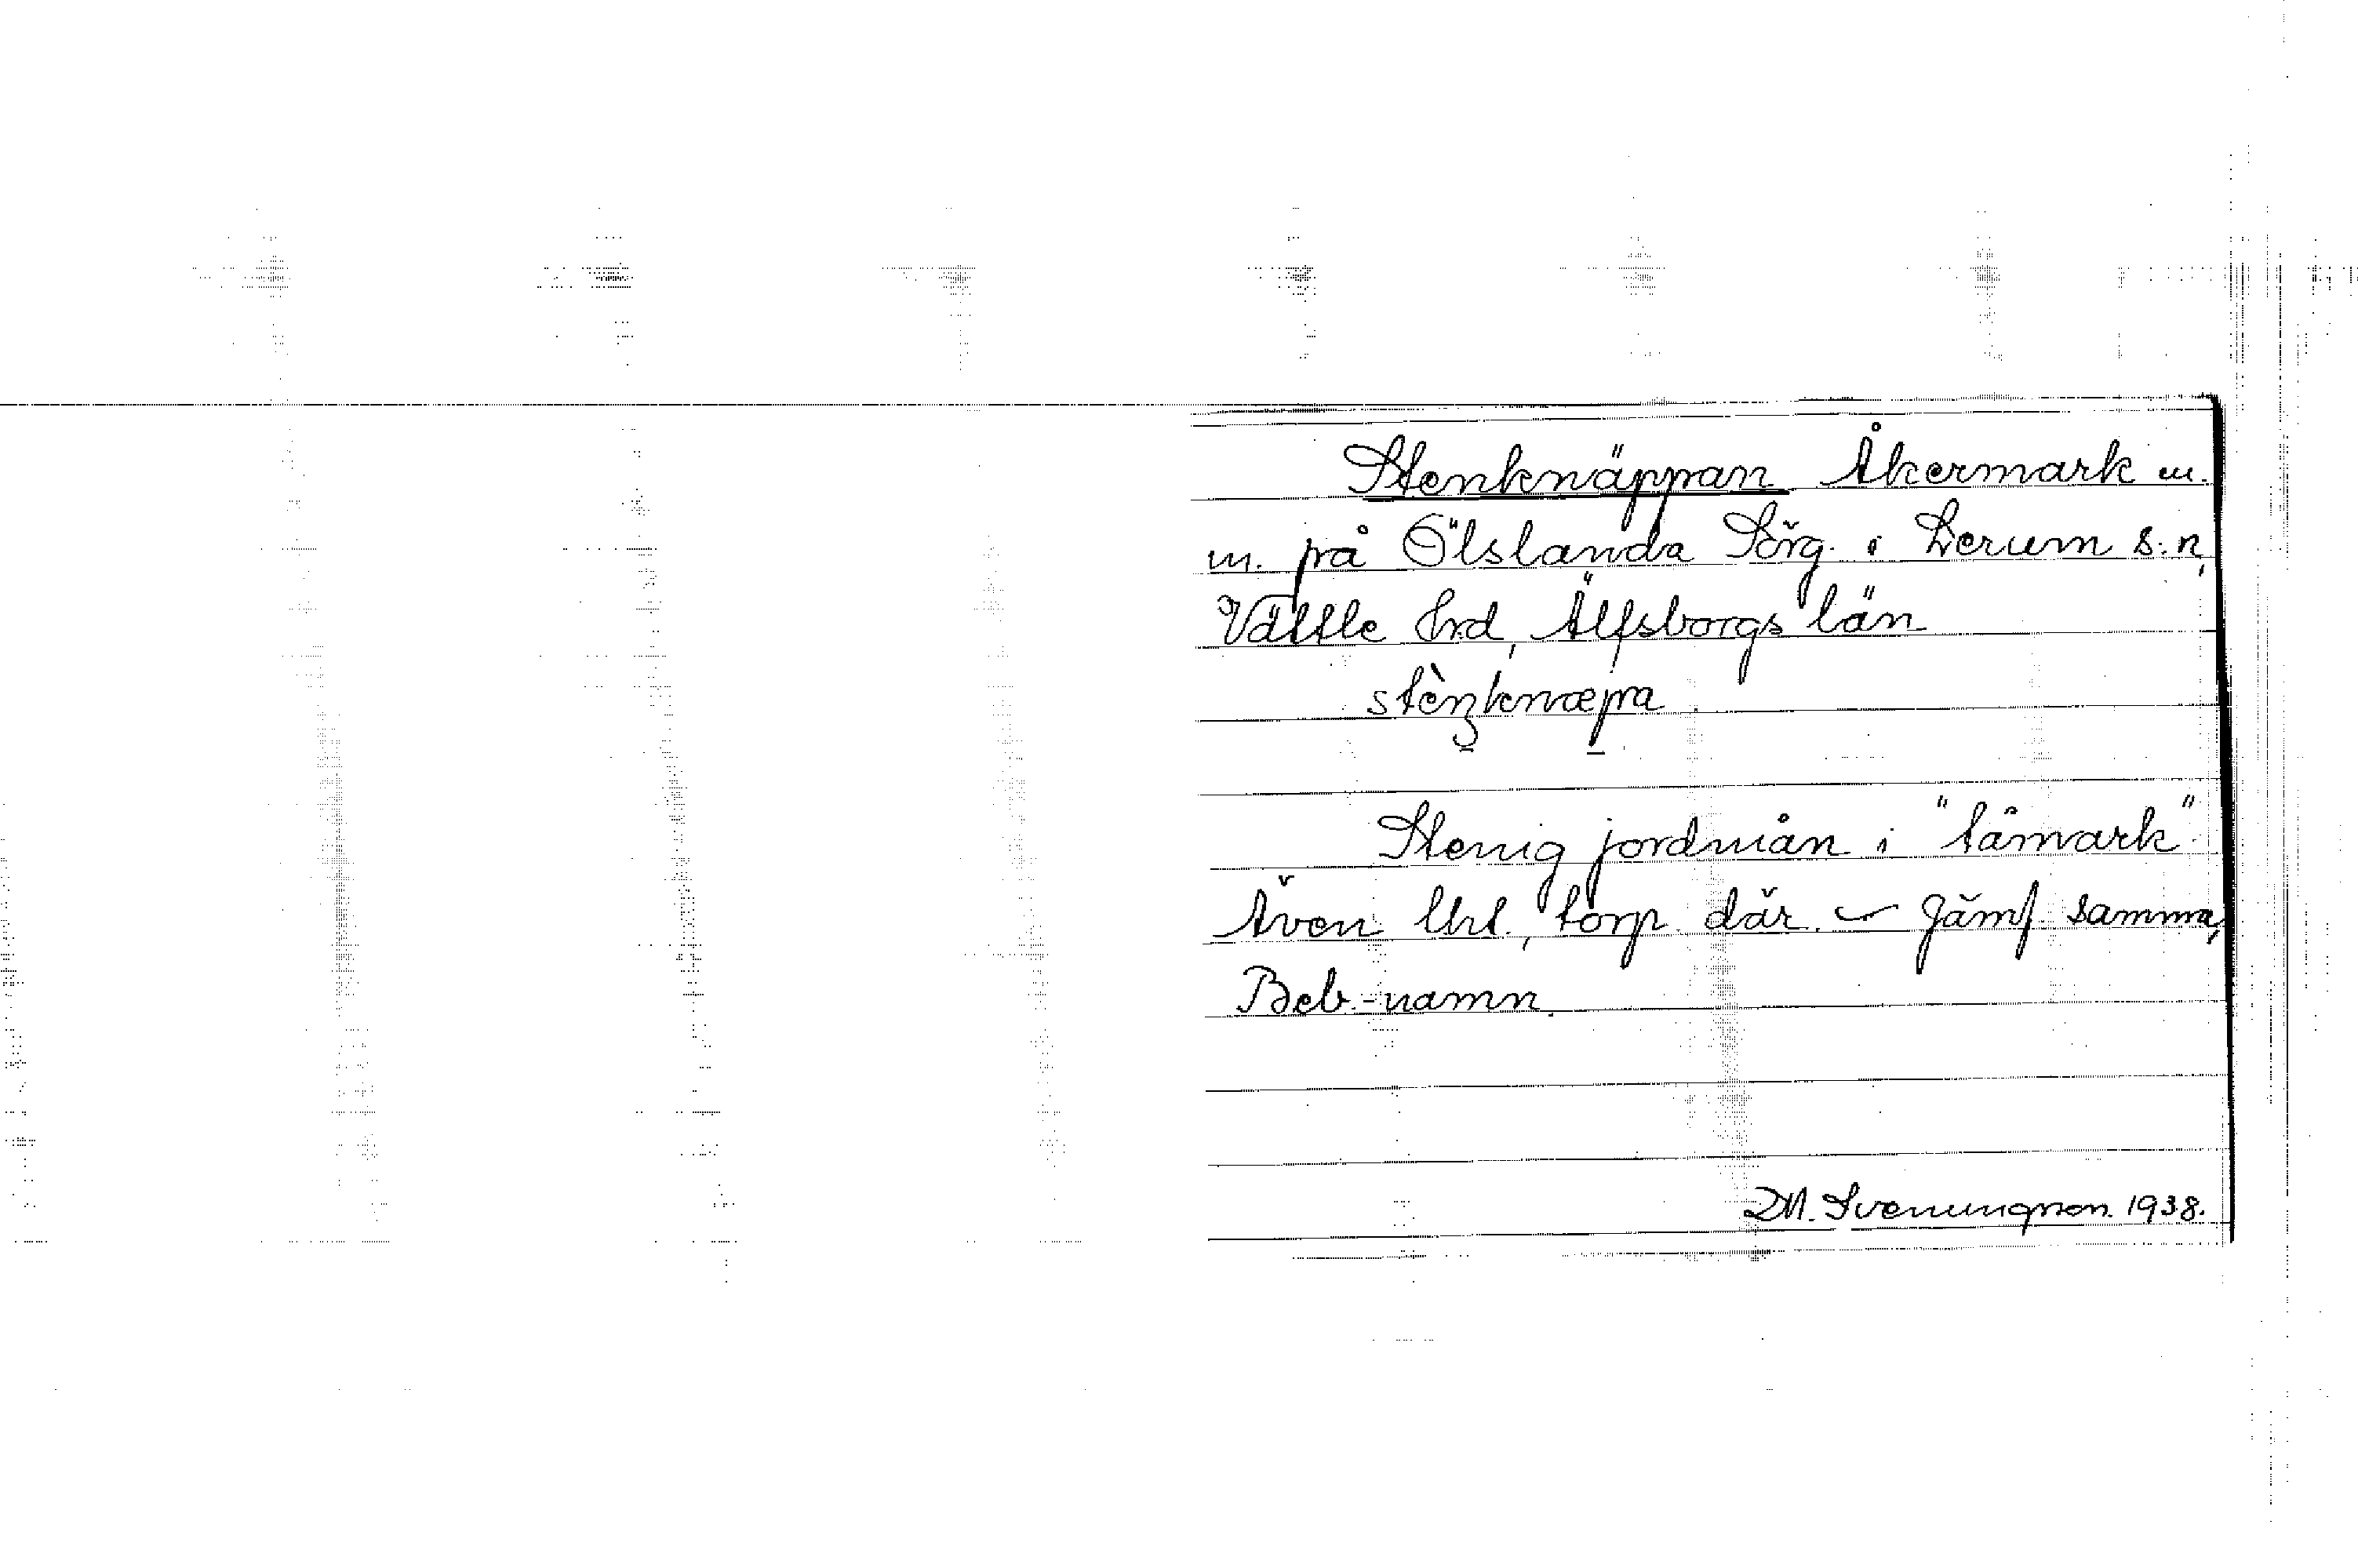 Stenknäppan Åkermark m.
m. på Ölslanda Sörg. i Lerum s:n,
Vättle hrd, Älfsborgs län
stènknæpa
Stenig jordmån i "lämark".
Även lht., torp där. – Jämf. samma,
Beb.-namn.
D.M. Svenungsson. 1938.